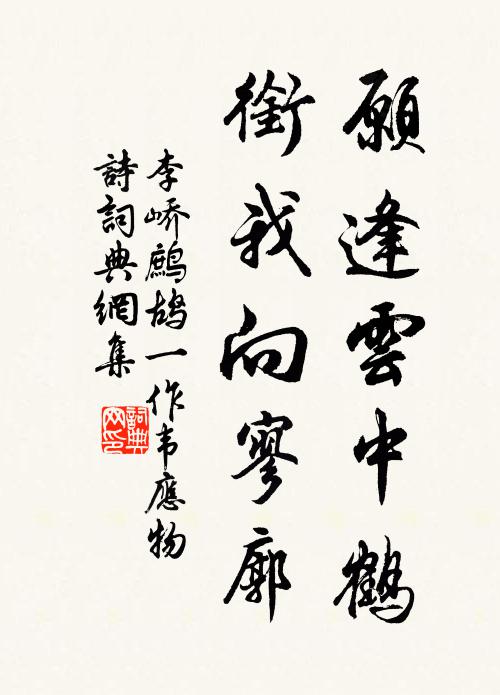 願逢雲中鶴
銜我向寥廓
李嶠鷓鴣一作韦應物
詩詞典網集
詞典
网印